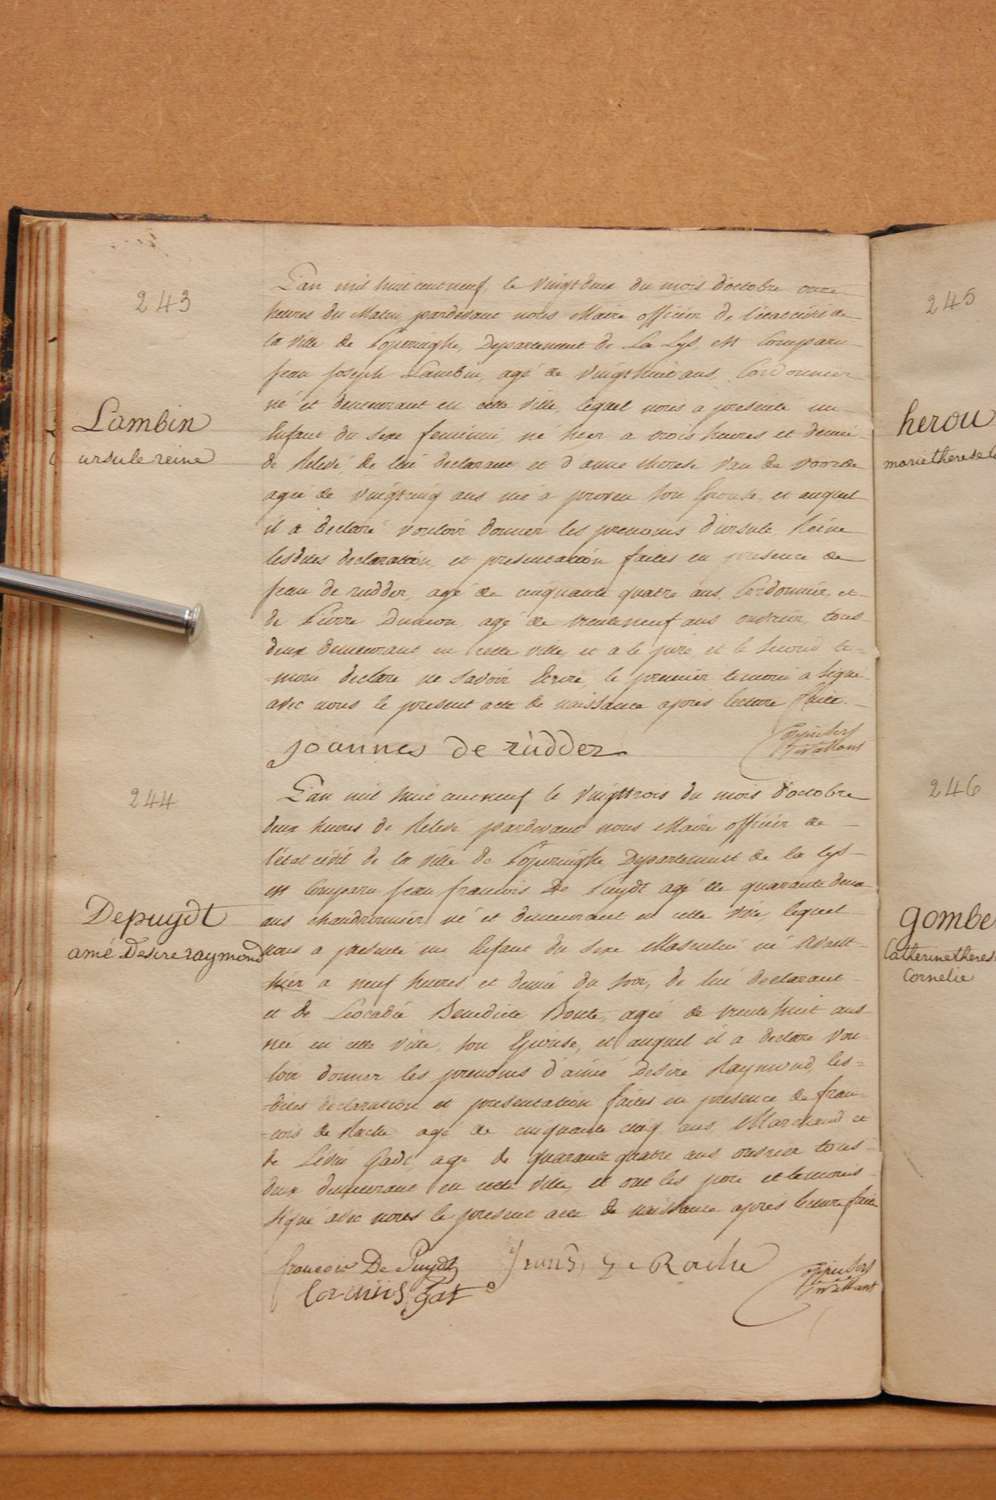 243
Lambin
ursule reine
L'an mil huit cent neuf, le vingt deux du mois d'octobre onze
heures du Matin, pardevant nous Maire officier de l'état civil de
la ville de Poperinghe, Departement de La Lys est Comparu
jean joseph Lambin, agé de vingt huit ans, Cordonnier
né et demeurant en cette ville, lequel nous a presenté un
Enfant du sexe feminin, né hier a trois heures et demie
de Relevé, de lui declarant et d'anne therese van de voorde
agée de vingt cinq ans née a proven son Epouse, et auquel
il a declaré vouloir donner les prenoms d'ursule Reine
lesdites declaration et presentation faites en presence de
jean de rudder, agé de cinquante quatre ans, Cordonnier, et
de Pierre agé de trente neuf ans ouvrier, tous
deux demeurans en cette ville, et a le pere et le second te=
=moin declare ne savoir Ecrire, le premier temoin a signé
avec nous le present acte de naissance apres lecture faite.
joannes de rudder
244
Depuydt
amé Desire raymond
L'an mil huit cent neuf le vingt trois du mois d'octobre
deux heures de Relevé pardevant nous Maire officier de
l'état civil de la ville de Poperinghe Departement de la Lys
est Comparu jean francois De Puydt agé de quarante deux
ans chaudronnier né et demeurant en cette ville lequel
nous a presenté un Enfant du sexe Masculin né avant
hier a neuf heures et demie du soir, de lui declarant
et de Leocadie Benedicte Boute, agée de trente huit ans
née en cette ville, son Epouse, et auquel il a declaré vou=
loir donner les prenoms d'aimé Desire Raymond, les=
=dites declaration et presentation faites en presence de fran=
=cois de Rache agé de cinquante cinq ans Marchand et
de agé de quarante quatre ans ouvrier tous
deux demeurans en cette ville, et ont les pere et temoins
signé avec nous le present acte de naissance apres lecture faite
francois De Puydt
de Rache
245
herou
marie therese
246
gombe
Catherine theres
Cornelie